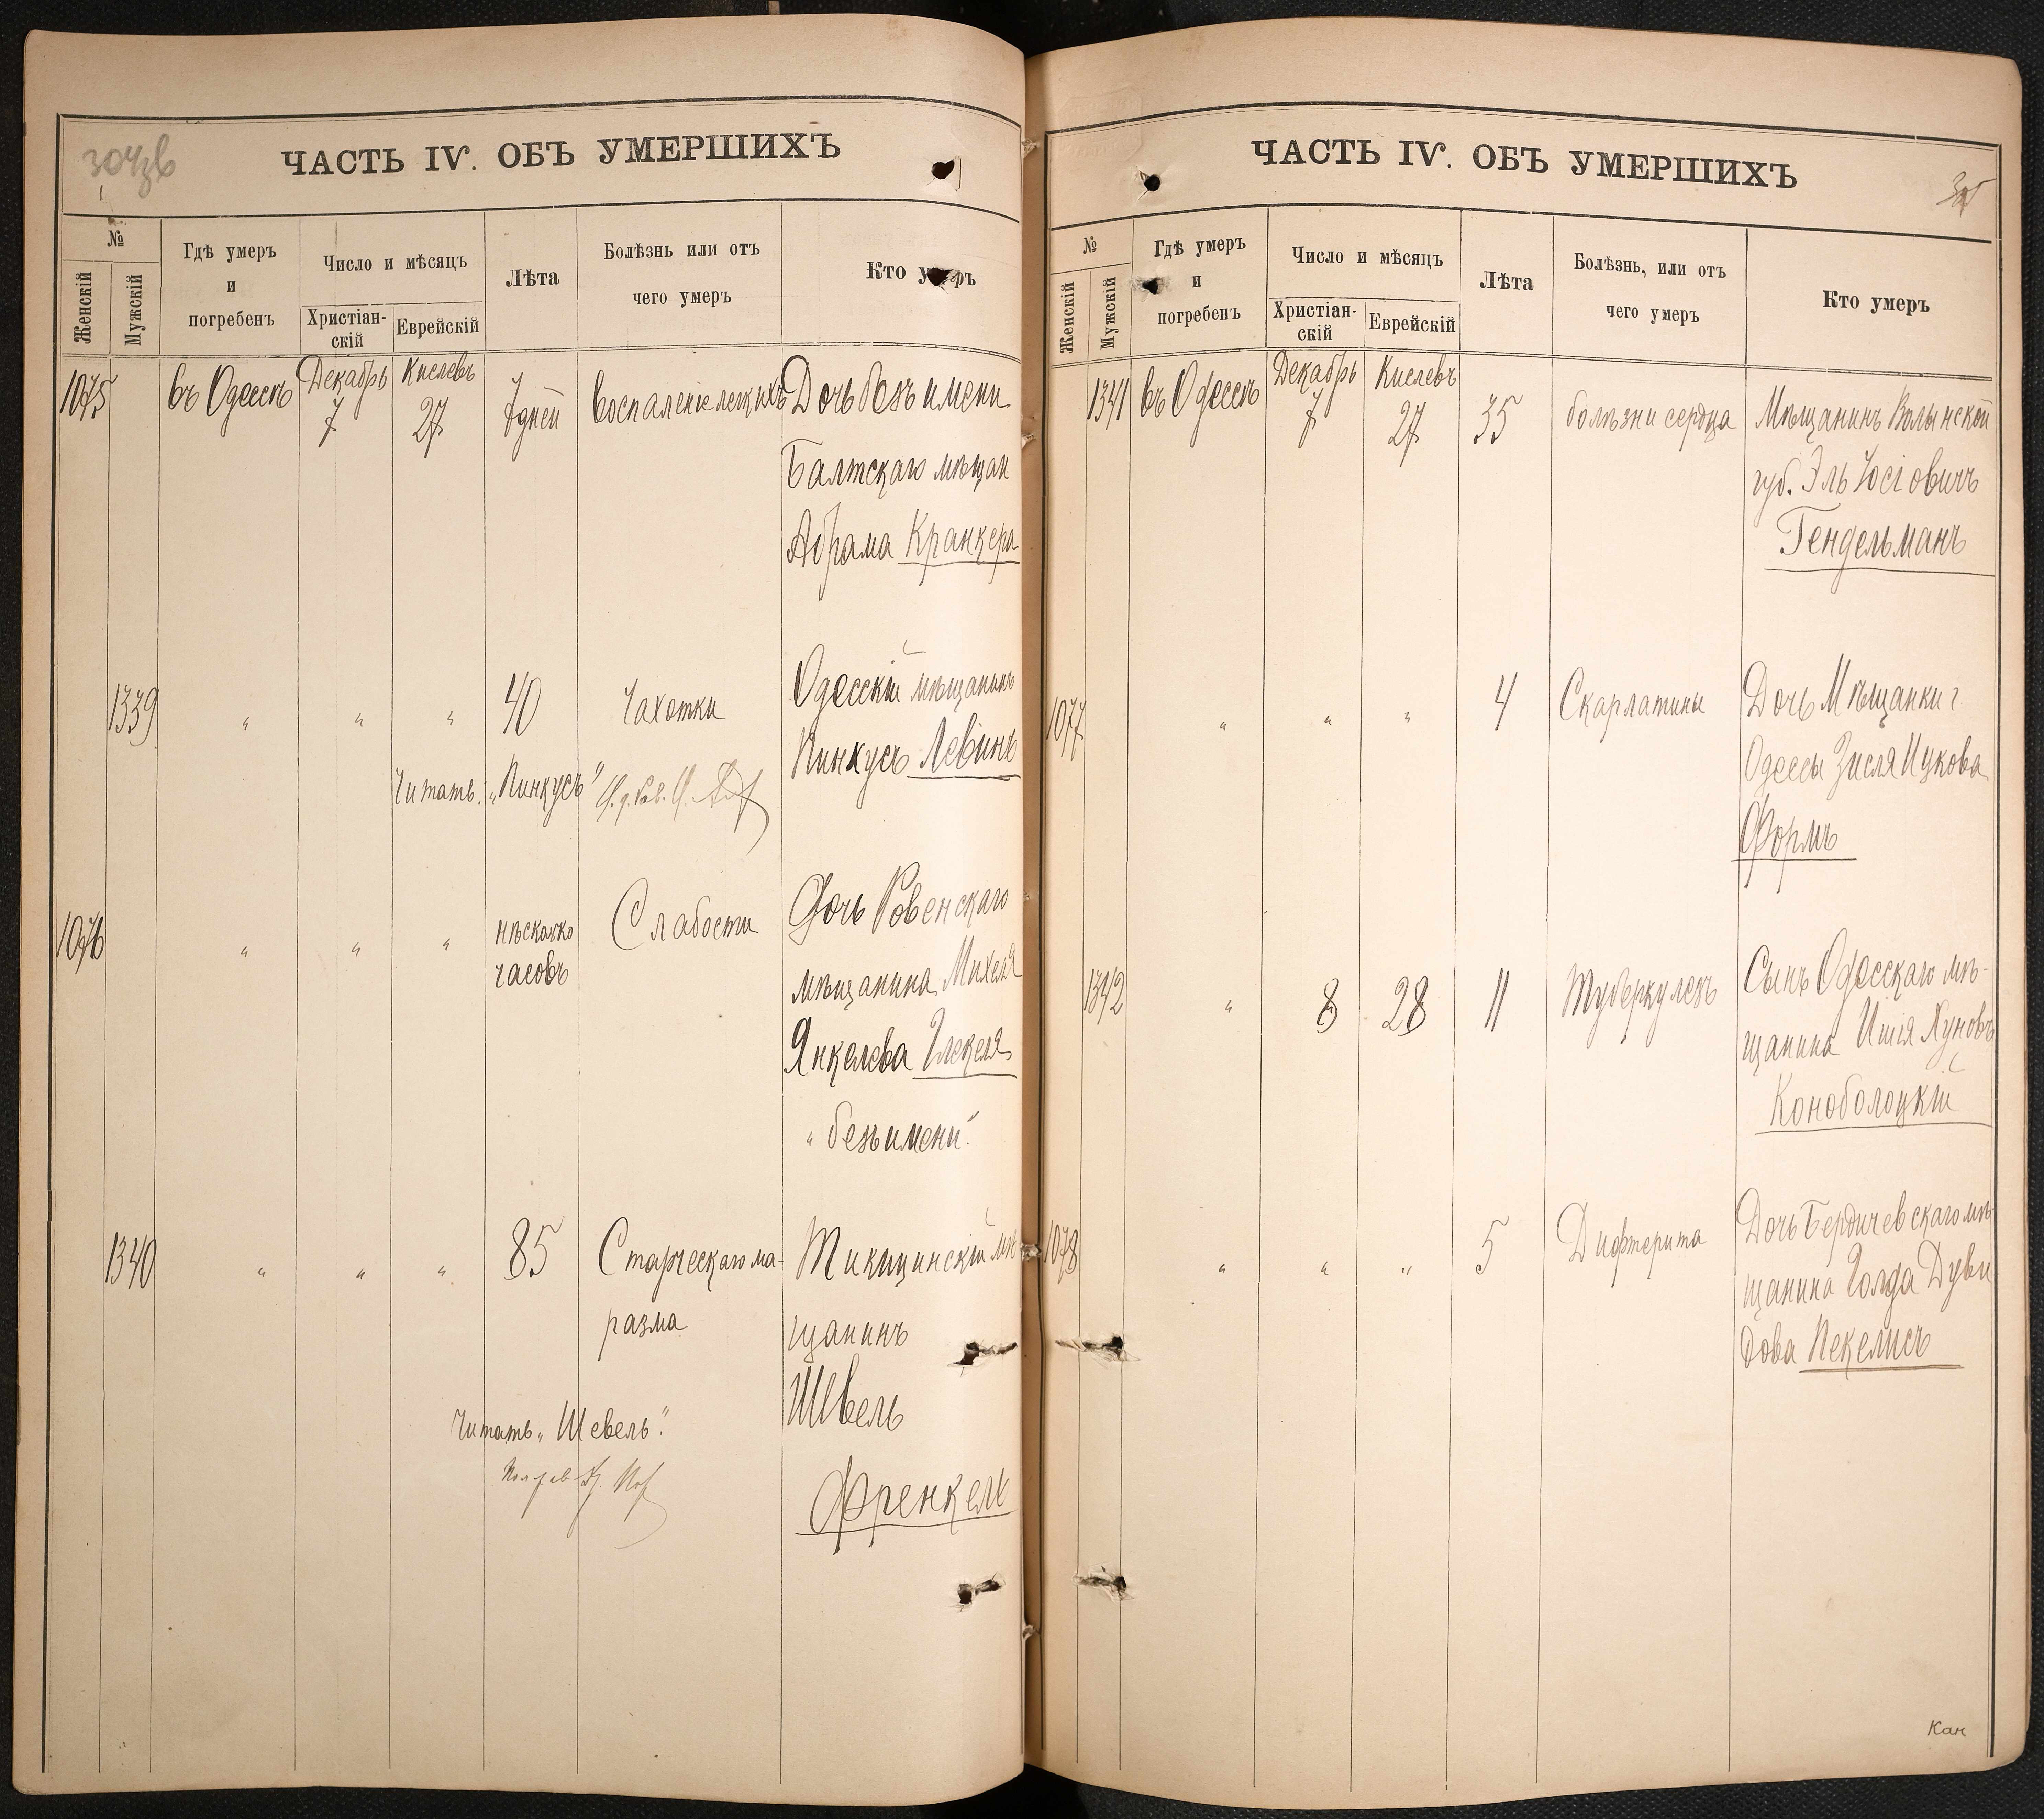 304зв
ЧАСТЬ IV. ОБЪ УМЕРШИХЪ
№
Женскій
Мужскій
Гдѣ умеръ
и
погребенъ
Число и мѣсяцъ
Христіан-
скій
Еврейскій
Лѣта
Болѣзнь или отъ
чего умеръ
Кто умеръ
1075 въ Одессѣ Декабрь 7 Кислевъ 27 7 дней воспаленіе легкихъ Дочь безъ имени
Балтскаго мѣщан
Абрама Кранкера
1339 " " " 40 Чахотки Одесскій мѣщанинъ
Пинкусъ Левинъ
Читать: „Пинкусъ"
1076 " " " нѣсколько
часовъ
Слабости Дочь Ровенскаго
мѣщанина Михеля
Янкелева Глекеля
„безъ имени"
1340 " " " 85 Старческаго ма-
разма
Тикицинскій мѣ
щанинъ
Швель
Френкель
Читать „Шевель".
ЧАСТЬ IV. ОБЪ УМЕРШИХЪ
№
Женскій
Мужскій
Гдѣ умеръ
и
погребенъ
Число и мѣсяцъ
Христіан-
скій
Еврейскій
Лѣта
Болѣзнь, или отъ
чего умеръ
Кто умеръ
1341 въ Одессѣ Декабрь 7 Кислевъ 27 35 болѣзни сердца Мѣщанинъ Волынской
губ. Эль Іосіовичъ
Гендельманъ
1077 " " " 4 Скарлатины Дочь Мѣщанки г
Одессы Зисля Ицкова
Формъ
1342 " 8 28 11 Туберкулезъ Сынъ Одесскаго мѣ-
щанина Ишія Хуновъ
Коноболоцкій
1078 " " " 5 Дифтерита Дочь Бердичевскаго мѣ-
щанина Голда Дуви
дова Пекелисъ
Кан